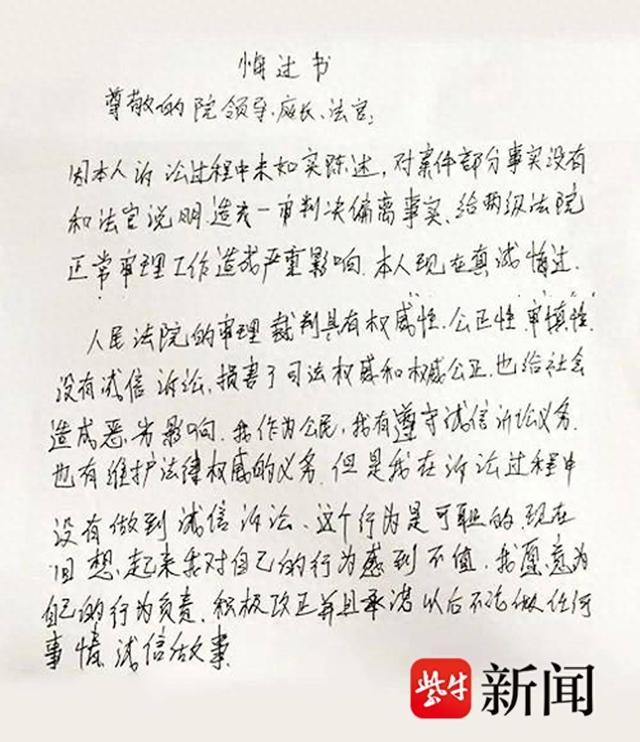 悔过书
尊敬的院领导、庭长、法官:
因本人诉讼过程中未如实陈述,对案件部分事实没有
和法官说明.造成一审判决偏离事实、给两级法院
正常审理工作造成严重影响.本人现在真诚悔过.
人民法院的审理裁判具有权威性.公正性.审慎性.
没有诚信诉讼,损害了司法权威和权威公正.也给社会
造成恶劣影响.我作为公民,我有遵守诚信诉讼义务.
也有维护法律权威的义务.但是我在诉讼过程中
没有做到诚信诉讼、这个行为是可耻的.现在
回想起来我对自己的行为感到不值.我愿意为
自己的行为负责.积极改正并且承诺以后不论做任何
事情诚信做事.
紫牛新闻